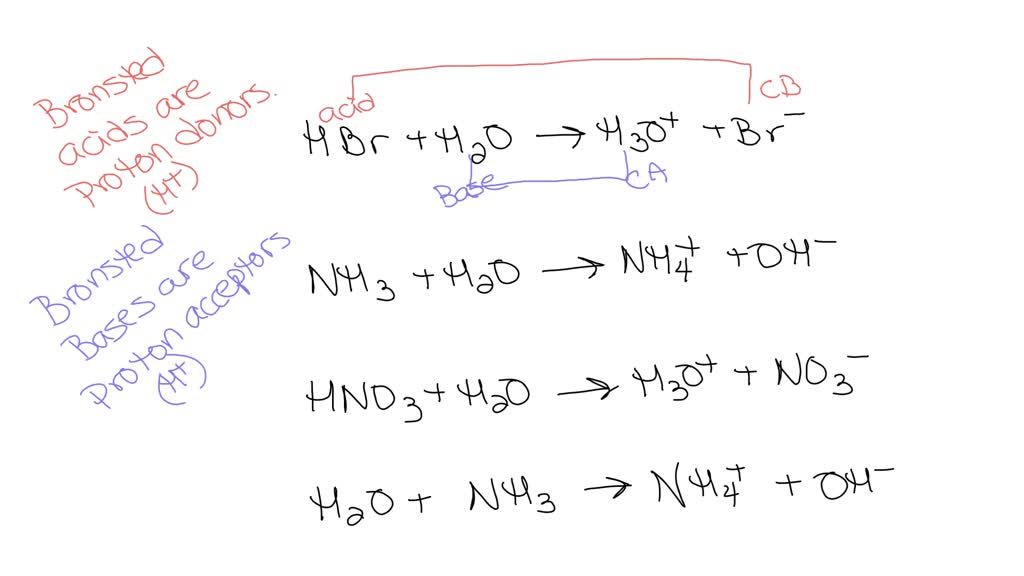 Bronsted
acids are
Proton donors.
(H+)
Bronsted
Bases are
Proton acceptors
(H+)
acid
CB
HBr + H₂O → H₃O⁺ + Br⁻
Base
CA
NH₃ + H₂O → NH₄⁺ + OH⁻
HNO₃ + H₂O → H₃O⁺ + NO₃⁻
H₂O + NH₃ → NH₄⁺ + OH⁻